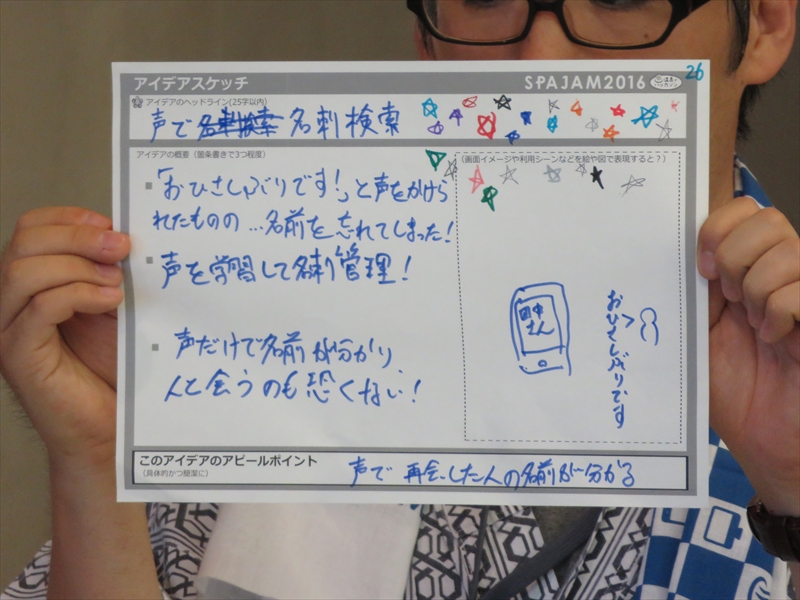 アイデアスケッチ
SPAJAM2016
26
アイデアのヘッドライン(25字以内)
声で名刺検索名刺検索
アイデアの概要(箇条書きで3つ程度)
(画面イメージや利用シーンなどを絵や図で表現すると?)
「おひさしぶりです!」と声をかけら
れたものの…名前を忘れてしまった!
声を学習して名刺管理!
声だけで名前が分かり、
人と会うのも恐くない!
田中
さん
おひさしぶりです
このアイデアのアピールポイント
(具体的かつ簡潔に)
声で再会した人の名前が分かる